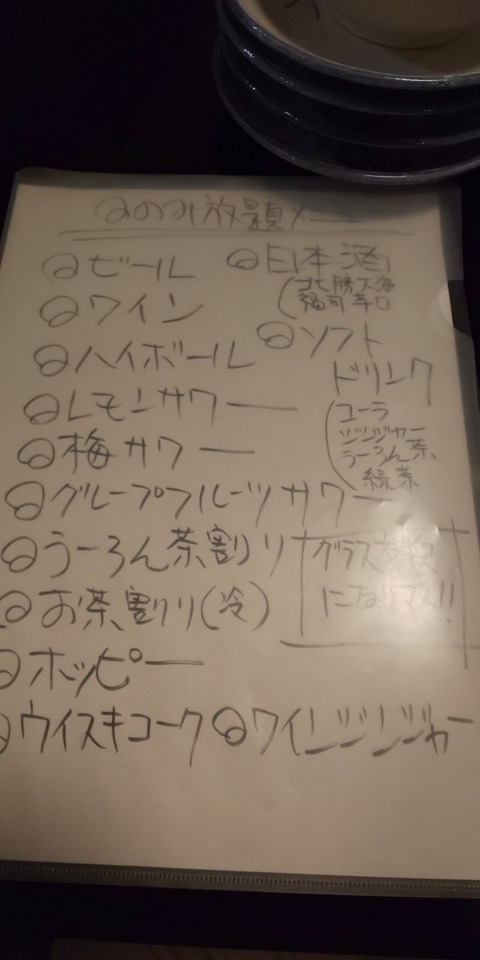 のみ放題メニュー
ビール
ワイン
ハイボール
レモンサワー
梅サワー
グループフルーツサワー
うーろん茶割り
お茶割り(冷)
ホッピー
ウイスキコーク
ワインジンジャー
日本酒
(北勝大海
福司辛口
ソフト
ドリンク
(コーラ
ジンジャー
うーろん茶
緑茶
グラス交換
になります!!